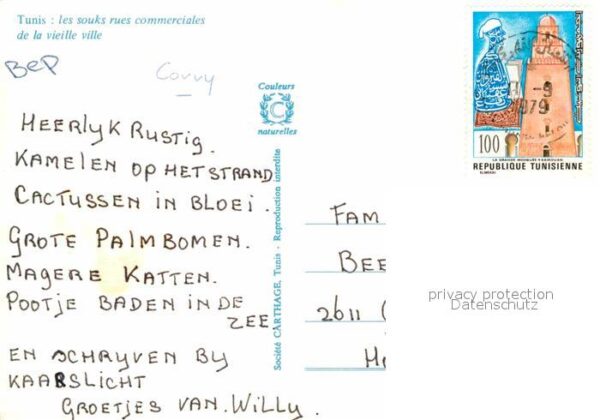 Tunis : les souks rues commerciales
de la vieille ville
BeP
Couleurs
C
naturelles
HEERLYK RUSTIG.
KAMELEN OP HET STRAND
CACTUSSEN IN BLOEI.
GROTE PALMBOMEN.
MAGERE KATTEN.
POOTJE BADEN IN DE
ZEE
EN SCHRYVEN BY
KAARSLICHT
GROETJES VAN. WILLY.
Société CARTHAGE, Tunis - Reproduction interdite
1979
100
LA GRANDE MOSQUÉE KAIROUAN
REPUBLIQUE TUNISIENNE
FAM
BEE
2611 (
HO
privacy protection
Datenschutz